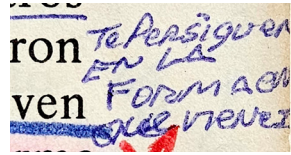 ron Te Persiguen
EN LA
ven FORMA EN
QUE VIENES